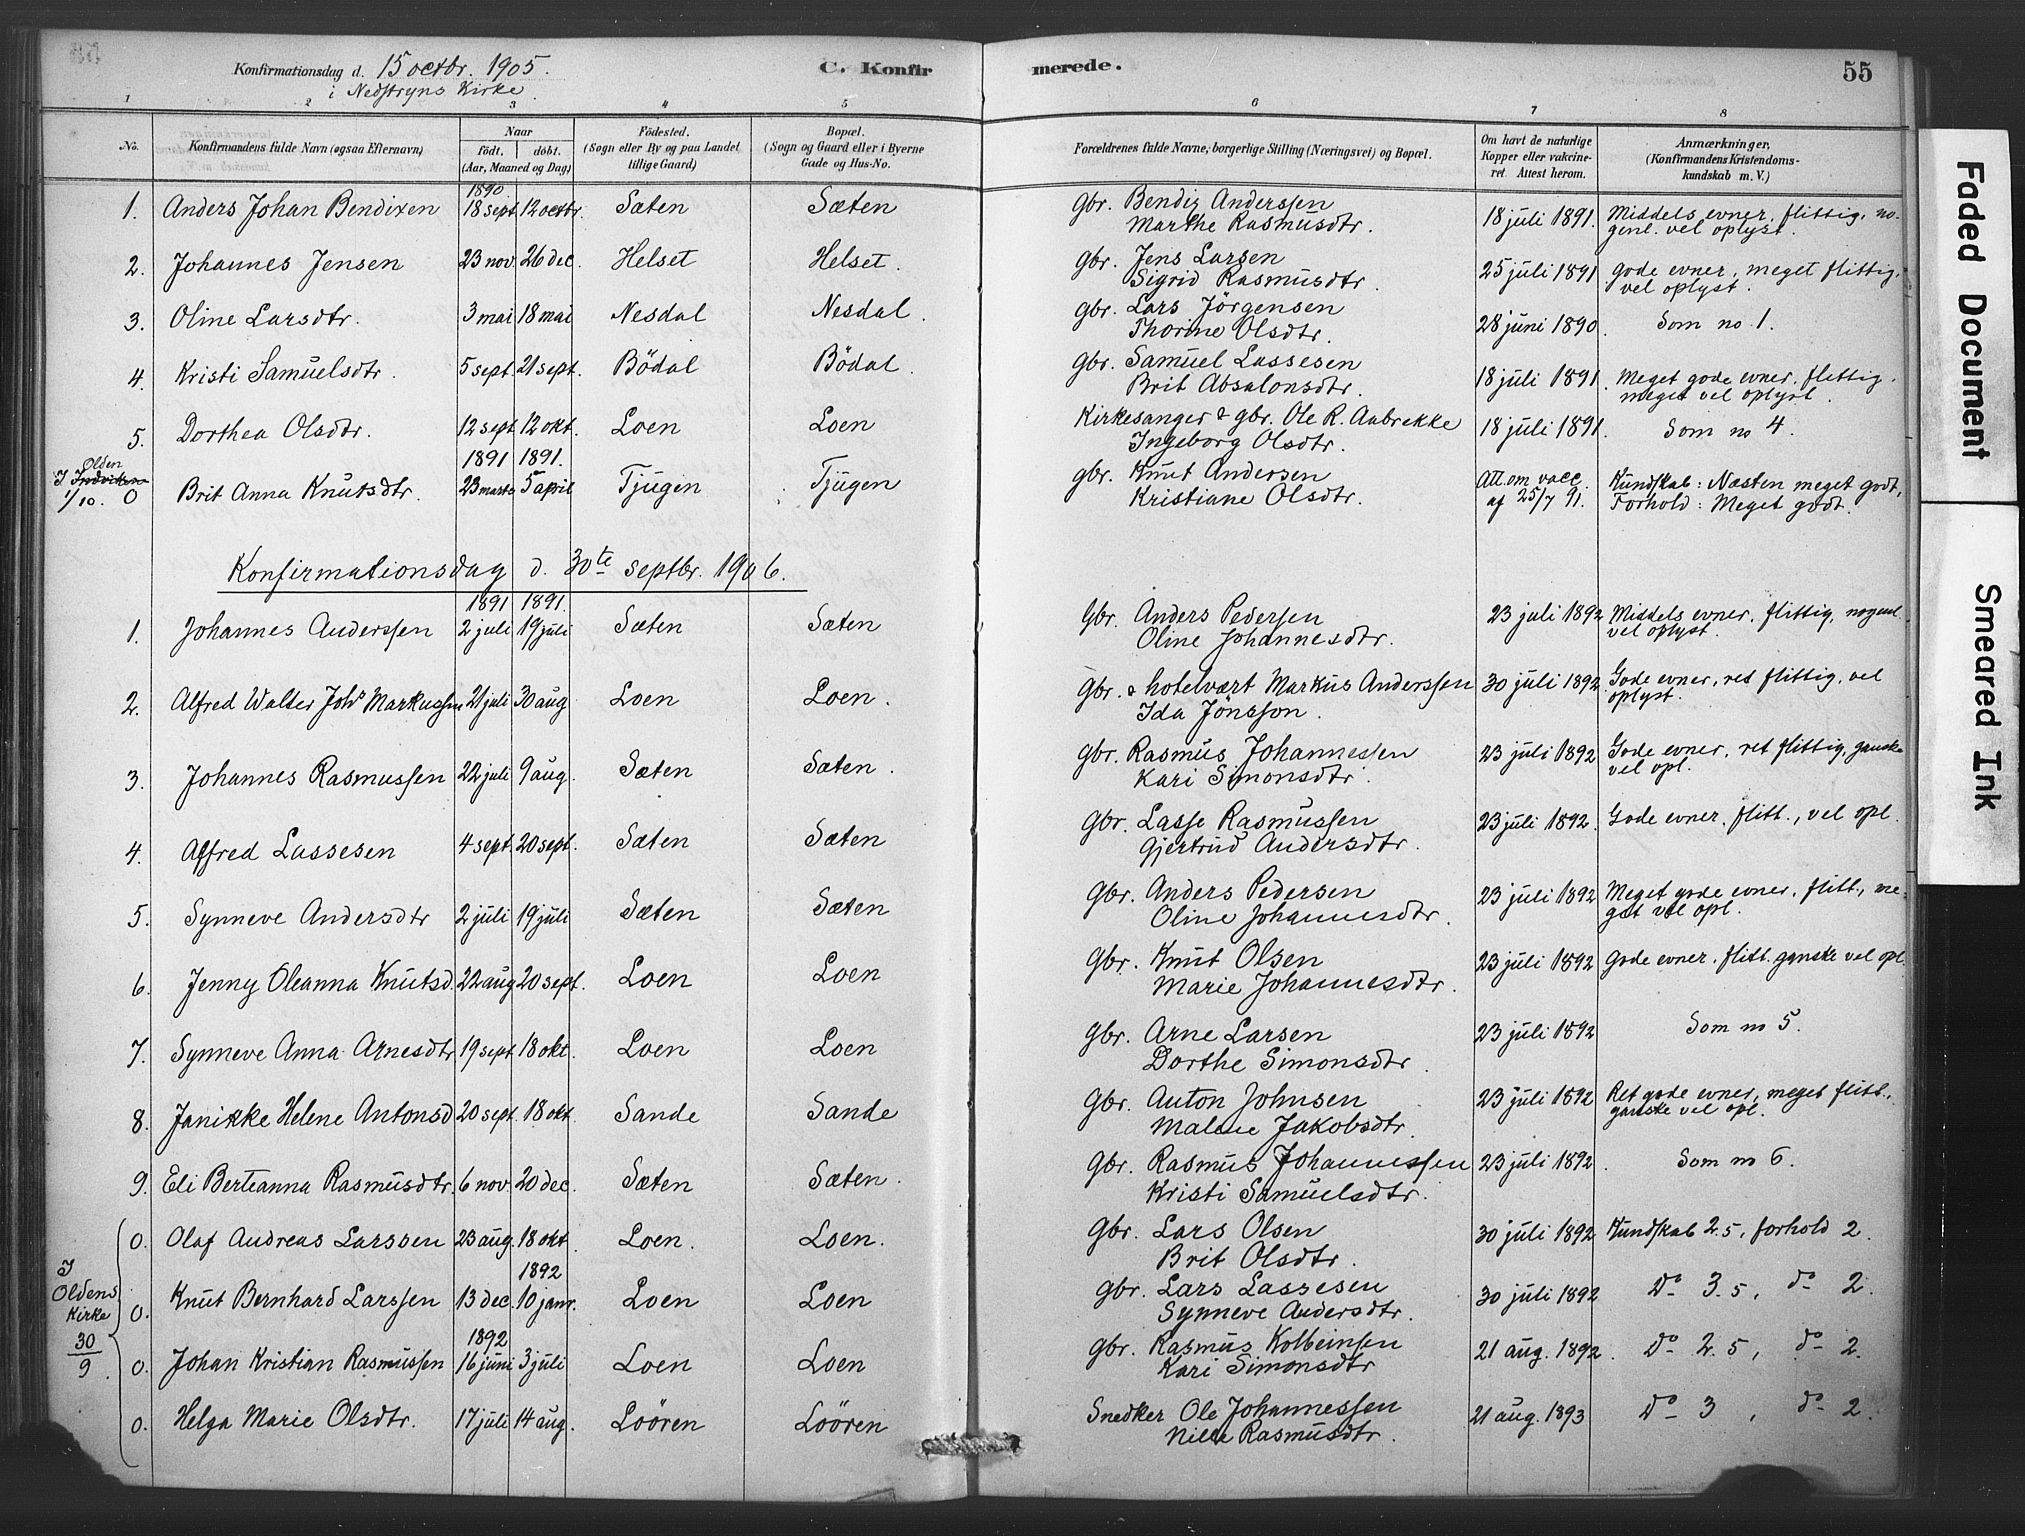 Konfirmationsdag d. 15 octbr. 1905.
i Nedstryns Kirke.
C. Konfirmerede.
55
1 2 3 4 5 6 7 8
No.
Konfirmandens fulde Navn (ogsaa Efternavn)
Naar
født. døbt.
(Aar, Maaned og Dag)
Födested.
(Sogn eller By og paa Landet
tillige Gaard)
Bopæl.
(Sogn og Gaard eller i Byerne
Gade og Hus-No.
Forældrenes fulde Navne, borgerlige Stilling (Næringsvei) og Bopæl.
Om havt de naturlige
Kopper eller vakcine-
ret. Attest herom.
Anmærkninger,
(Konfirmandens Kristendoms-
kundskab m. V.)
1890
1. Anders Johan Bendixen 18 sept. 12 octbr. Sæten Sæten Gbr. Bendix Anderssen 18 juli 1891. Middels evner, flittig, no-
Marthe Rasmusdtr. genl. vel oplyst.
2. Johannes Jensen 23 nov. 26 dec. Helset Helset. Gbr. Jens Larsen 25 juli 1891 Gode evner, meget flittig,
Sigrid Rasmusdtr. vel oplyst.
3. Oline Larsdtr. 3 mai 18 mai Nesdal Nesdal. Gbr. Lars Jörgensen 28 juni 1890. Som no 1.
Thorine Olsdtr.
4. Kristi Samuelsdtr. 5 sept. 21 sept. Bödal Bödal. Gbr. Samuel Lassesen 18 juli 1891. Meget gode evner, flittig,
Brit Absalonsdtr. meget vel oplyst.
5. Dorthea Olsdtr. 12 sept. 12 okt. Loen Loen Kirkesanger & gbr. Ole R. Aabrekke 18 juli 1891. Som no 4.
Ingeborg Olsdtr.
1891 1891.
I Olden Indviken
1/10. 0 Brit Anna Knutsdtr. 23 marts 5 april Tjugen Tjugen Gbr. Knut Andersen Att. om vacc. Kundskab: Næsten meget godt,
Kristiane Olsdtr. af 25/7 91. Forhold: Meget godt.
Konfirmationsdag d. 30te septbr. 1906.
1891 1891.
1. Johannes Anderssen 2 juli 19 juli Sæten Sæten Gbr. Anders Pedersen 23 juli 1892 Middels evner, flittig, nogenl.
Oline Johannesdtr. vel oplyst.
2. Alfred Walter Johs Markussen 21 juli 30 aug Loen Loen. Gbr. & hotelvært Markus Anderssen 30 juli 1892 Gode evner, ret flittig, vel
Ida Jönsson. oplyst.
3. Johannes Rasmussen 22 juli 9 aug. Sæten Sæten. Gbr. Rasmus Johannessen 23 juli 1892 Gode evner, ret flittig, ganske
Kari Simonsdtr. vel opl.
4. Alfred Lassesen 4 sept. 20 sept. Sæten Sæten Gbr. Lasse Rasmussen 23 juli 1892. Gode evner, flitt., vel opl.
Gjertrud Andersdtr.
5. Synneve Andersdtr 2 juli 19 juli Sæten Sæten Gbr. Anders Pedersen 23 juli 1892 Meget gode evner, flitt., me-
Oline Johannesdtr. get vel opl.
6. Jenny Oleanna Knutsd. 22 aug 20 sept. Loen Loen Gbr. Knut Olsen 23 juli 1892 Gode evner, flitt. ganske vel opl.
Marie Johannesdtr.
7. Synneve Anna Arnesdtr 19 sept 18 okt. Loen Loen Gbr. Arne Larsen 23 juli 1892 Som no 5.
Dorthe Simonsdtr.
8. Janikke Helene Antonsd 20 sept. 18 okt. Sande Sande Gbr. Anton Johnsen 23 juli 1892 Ret gode evner, meget flitt.,
Malene Jakobsdtr. ganske vel opl.
9. Eli Berteanna Rasmusdtr. 6 nov. 20 dec. Sæten Sæten. Gbr. Rasmus Johannessen 23 juli 1892. Som no 6.
Kristi Samuelsdtr.
0. Olaf Andreas Larssen 23 aug. 18 okt. Loen. Loen. Gbr. Lars Olsen 30 juli 1892 Kundskab 2.5, forhold 2.
Brit Olsdtr.
1892
I
Oldens
Kirke
30
9
0. Knut Bernhard Larssen 13 dec. 10 janr. Loen Loen Gbr. Lars Lassesen 30 juli 1892 Do 3.5, do 2.
Synneve Andersdtr.
1892
0. Johan Kristian Rasmussen 16 juni 3 juli Loen Loen Gbr. Rasmus Kolbeinsen 21 aug. 1892. Do 2.5, do 2.
Kari Simonsdtr
0. Helga Marie Olsdtr. 17 juli 14 aug. Loören Loören Snedker Ole Johannessen 21 aug. 1893 Do 3, do 2.
Nille Rasmusdtr.
Faded Document
Smeared Ink